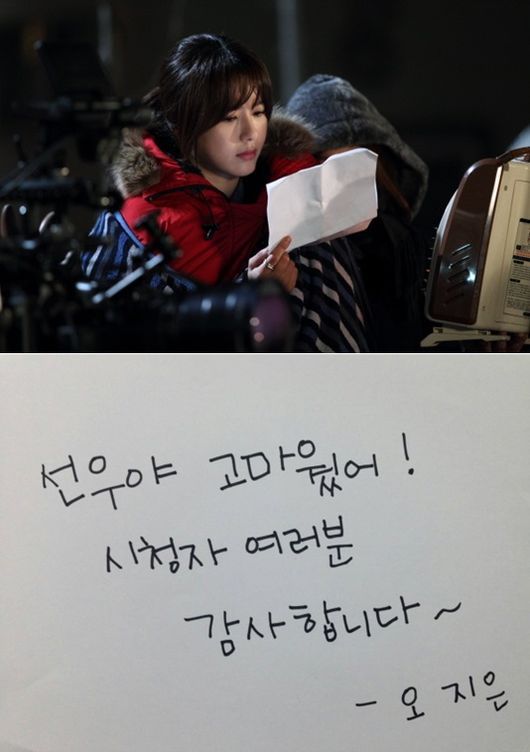 선우야 고마웠어!
시청자 여러분
감사합니다~
- 오지은